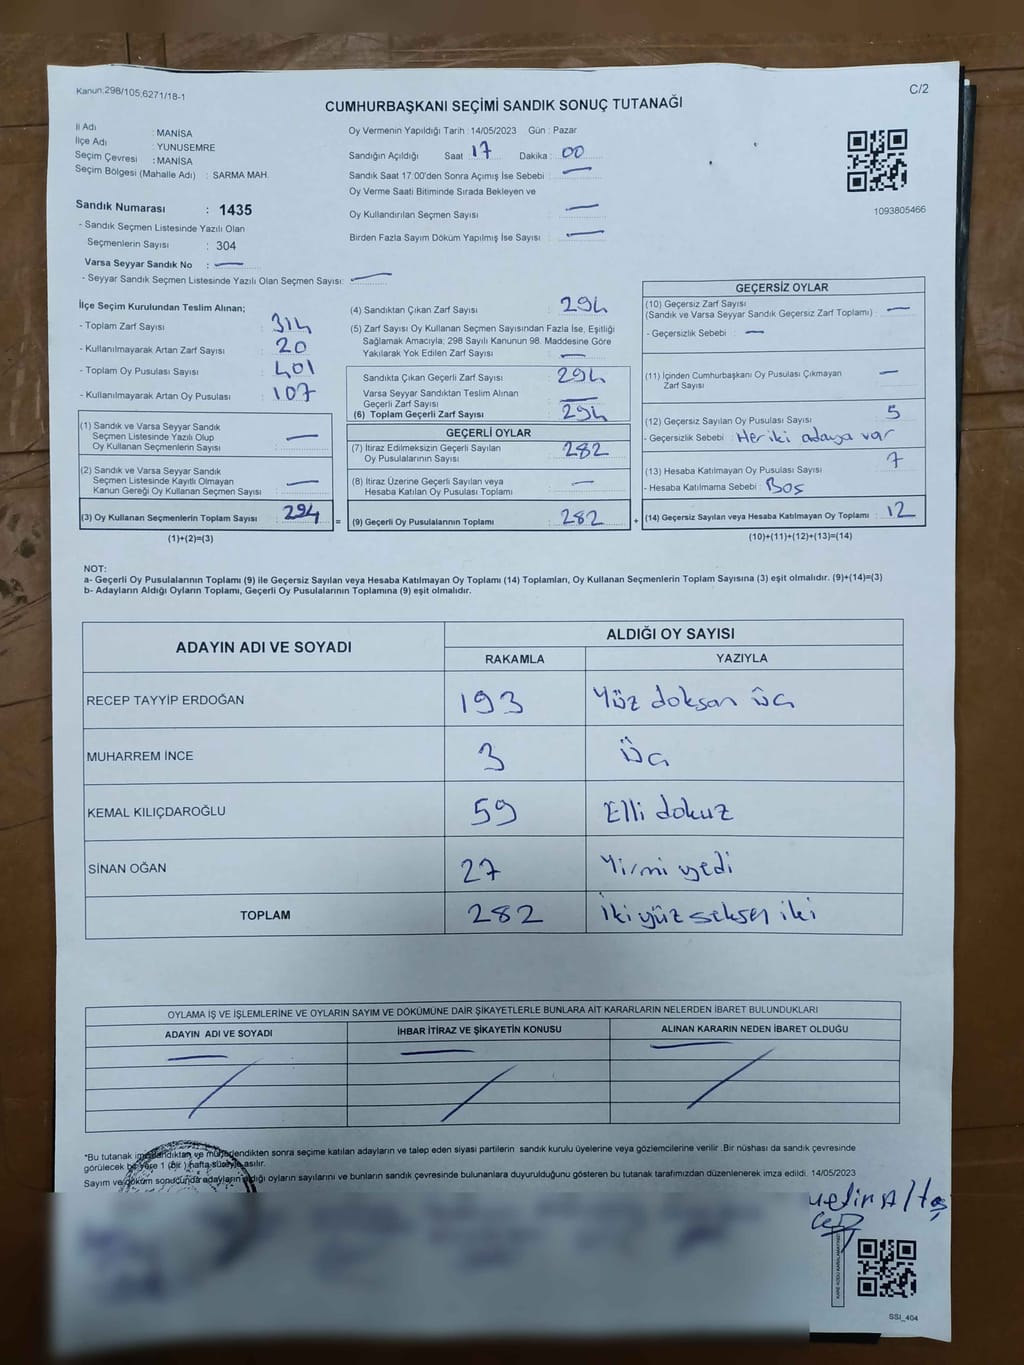 Kanun:298/105,6271/18-1
C/2
CUMHURBAŞKANI SEÇİMİ SANDIK SONUÇ TUTANAĞI
İl Adı : MANİSA
İlçe Adı : YUNUSEMRE
Seçim Çevresi : MANİSA
Seçim Bölgesi (Mahalle Adı) : SARMA MAH.
Sandık Numarası : 1435
- Sandık Seçmen Listesinde Yazılı Olan
Seçmenlerin Sayısı : 304
Varsa Seyyar Sandık No : —
- Seyyar Sandık Seçmen Listesinde Yazılı Olan Seçmen Sayısı: —
Oy Vermenin Yapıldığı Tarih : 14/05/2023 Gün : Pazar
Sandığın Açıldığı Saat : 17 Dakika : 00
Sandık Saat 17:00'den Sonra Açımış İse Sebebi : —
Oy Verme Saati Bitiminde Sırada Bekleyen ve
Oy Kullandırılan Seçmen Sayısı : —
Birden Fazla Sayım Döküm Yapılmış İse Sayısı : —
1093805466
İlçe Seçim Kurulundan Teslim Alınan;
- Toplam Zarf Sayısı : 314
- Kullanılmayarak Artan Zarf Sayısı : 20
- Toplam Oy Pusulası Sayısı : 401
- Kullanılmayarak Artan Oy Pusulası : 107
(1) Sandık ve Varsa Seyyar Sandık
Seçmen Listesinde Yazılı Olup
Oy Kullanan Seçmenlerin Sayısı : —
(2) Sandık ve Varsa Seyyar Sandık
Seçmen Listesinde Kayıtlı Olmayan
Kanun Gereği Oy Kullanan Seçmen Sayısı : —
(3) Oy Kullanan Seçmenlerin Toplam Sayısı : 294
(1)+(2)=(3)
=
(4) Sandıktan Çıkan Zarf Sayısı : 294
(5) Zarf Sayısı Oy Kullanan Seçmen Sayısından Fazla İse, Eşitliği
Sağlamak Amacıyla; 298 Sayılı Kanunun 98. Maddesine Göre
Yakılarak Yok Edilen Zarf Sayısı : —
Sandıkta Çıkan Geçerli Zarf Sayısı : 294
Varsa Seyyar Sandıktan Teslim Alınan
Geçerli Zarf Sayısı : —
(6) Toplam Geçerli Zarf Sayısı : 294
GEÇERLİ OYLAR
(7) İtiraz Edilmeksizin Geçerli Sayılan
Oy Pusulalarının Sayısı : 282
(8) İtiraz Üzerine Geçerli Sayılan veya
Hesaba Katılan Oy Pusulası Toplamı : —
(9) Geçerli Oy Pusulalarının Toplamı : 282
+
GEÇERSİZ OYLAR
(10) Geçersiz Zarf Sayısı
(Sandık ve Varsa Seyyar Sandık Geçersiz Zarf Toplamı) : —
- Geçersizlik Sebebi : —
(11) İçinden Cumhurbaşkanı Oy Pusulası Çıkmayan
Zarf Sayısı : —
(12) Geçersiz Sayılan Oy Pusulası Sayısı : 5
- Geçersizlik Sebebi : Her iki adaya var
(13) Hesaba Katılmayan Oy Pusulası Sayısı : 7
- Hesaba Katılmama Sebebi : Boş
(14) Geçersiz Sayılan veya Hesaba Katılmayan Oy Toplamı : 12
(10)+(11)+(12)+(13)=(14)
NOT:
a- Geçerli Oy Pusulalarının Toplamı (9) ile Geçersiz Sayılan veya Hesaba Katılmayan Oy Toplamı (14) Toplamları, Oy Kullanan Seçmenlerin Toplam Sayısına (3) eşit olmalıdır. (9)+(14)=(3)
b- Adayların Aldığı Oyların Toplamı, Geçerli Oy Pusulalarının Toplamına (9) eşit olmalıdır.
ADAYIN ADI VE SOYADI ALDIĞI OY SAYISI
RAKAMLA YAZIYLA
RECEP TAYYİP ERDOĞAN 193 Yüz doksan üç
MUHARREM İNCE 3 Üç
KEMAL KILIÇDAROĞLU 59 Elli dokuz
SİNAN OĞAN 27 Yirmi yedi
TOPLAM 282 İki yüz seksen iki
OYLAMA İŞ VE İŞLEMLERİNE VE OYLARIN SAYIM VE DÖKÜMÜNE DAİR ŞİKAYETLERLE BUNLARA AİT KARARLARIN NELERDEN İBARET BULUNDUKLARI
ADAYIN ADI VE SOYADI İHBAR İTİRAZ VE ŞİKAYETİN KONUSU ALINAN KARARIN NEDEN İBARET OLDUĞU
*Bu tutanak imzalandıktan ve mühürlendikten sonra seçime katılan adayların ve talep eden siyasi partilerin sandık kurulu üyelerine veya gözlemcilerine verilir. Bir nüshası da sandık çevresinde
görülecek bir yere 1 (bir) hafta süreyle asılır.
Sayım ve döküm sonucunda adayların aldığı oyların sayılarını ve bunların sandık çevresinde bulunanlara duyurulduğunu gösteren bu tutanak tarafımızdan düzenlenerek imza edildi. 14/05/2023
SSI_404